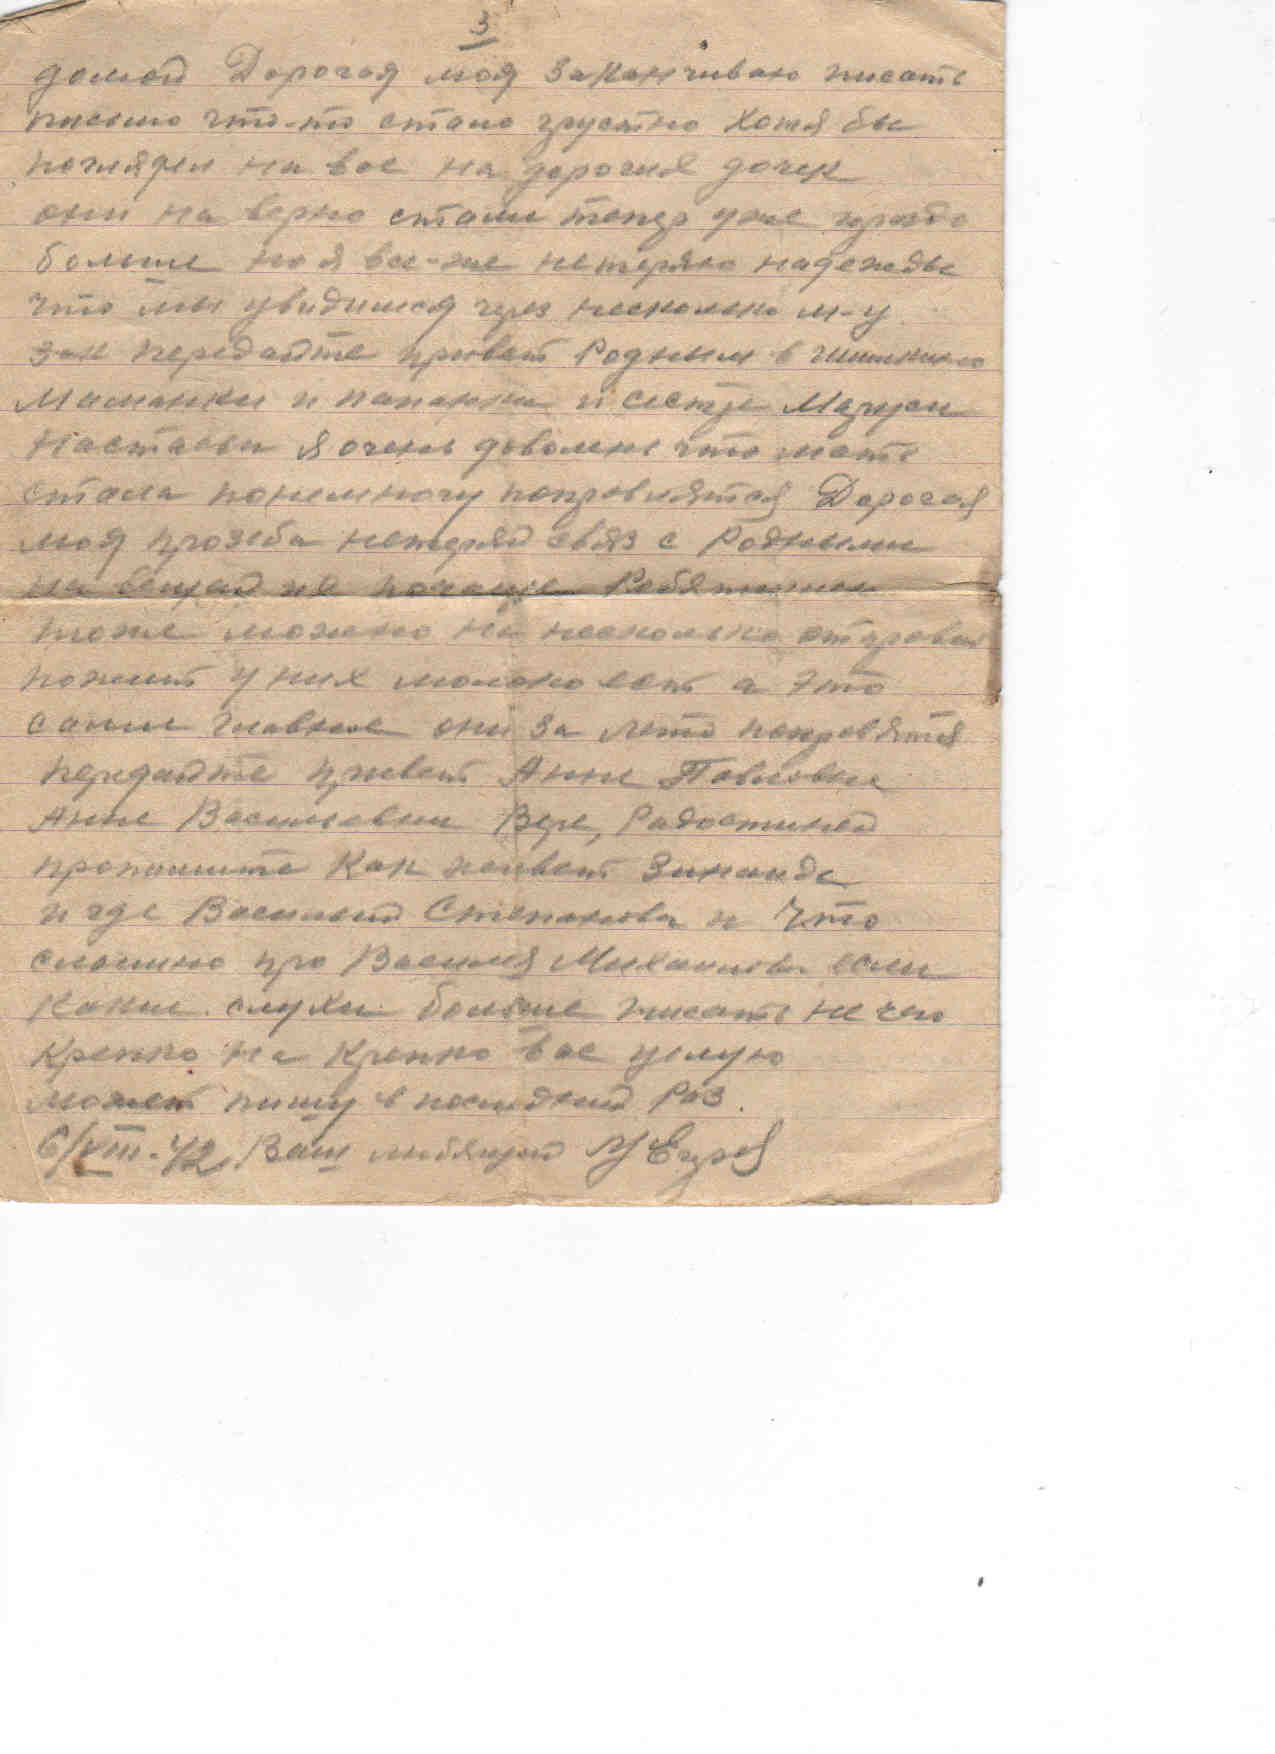 3
домой Дорогая моя заканчиваю писать
письмо что-то стало грустно хотя бы
поглядел на вас на дорогих дочек
они на верно стали теперь уже гораздо
больше но я все-же нетеряю надежды
что мы увидимся через несколько м-у
Зак передайте привет Родным в
Мамаши и папаши и сестре Маруси
Настасьи я очень доволен что мать
стала понемногу поправлятся Дорогая
моя прозба нетеряй связ с Родными
на вещай их почаще Ребятишек
тоже можно на несколько отправит
пожит у них молоко ест а это
самое главное они за лето поправятся
передайте привет Анне Павловне
Анне Васильевни Вере, Радостиной
пропишите Как живет Зинаида
и где Василий Степанович и Что
слышно про Василия Михайлова если
какие слухи больше писать не чего
Крепко на Крепко вас целую
может пишу в последний Раз.
6/VIII-42 Ваш любящий